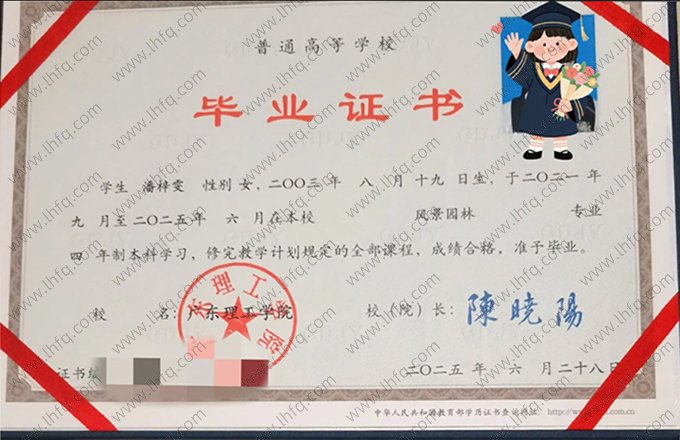 普通高等学校
毕业证书
学生 潘梓雯 性别 女，二〇〇三年 八 月 十九 日生，于二〇二一年
九 月至二〇二五年 六 月在本校 风景园林 专业
四 年制本科学习，修完教学计划规定的全部课程，成绩合格，准予毕业。
校 名：广东理工学院 校（院）长：陳曉陽
证书编
二〇二五 年 六 月二十八日
中华人民共和国教育部学历证书查询网址
www.lhfq.com